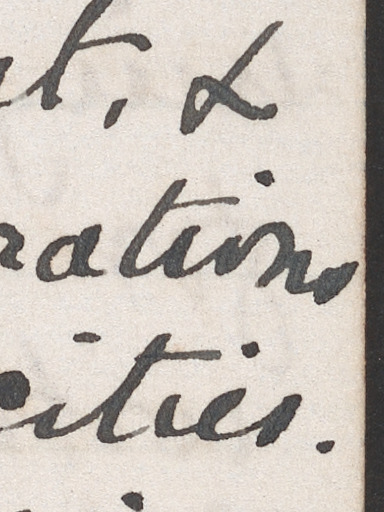 t, &
rations
cities.